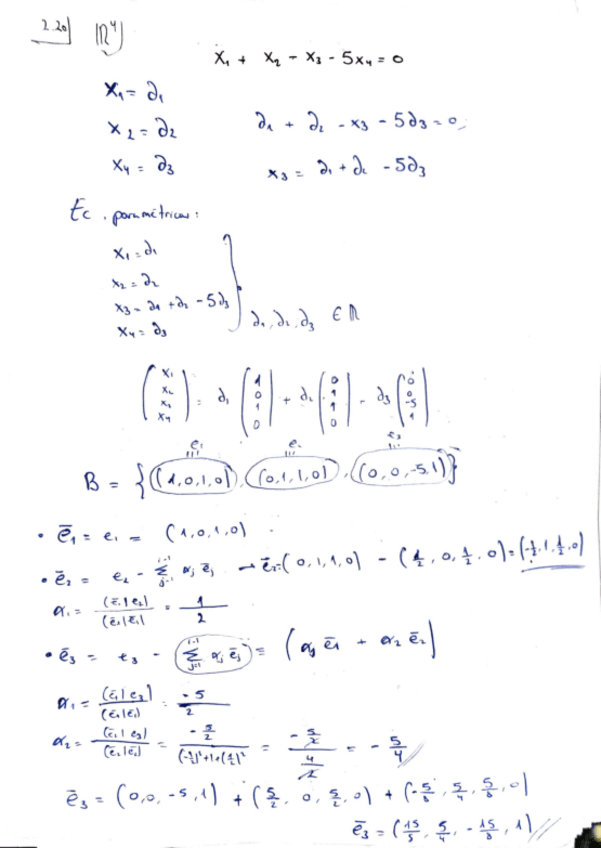 2.20) ℝ⁴)
x₁ + x₂ - x₃ - 5x₄ = 0
x₁ = ∂₁
x₂ = ∂₂ ∂₁ + ∂₂ - x₃ - 5∂₃ = 0
x₄ = ∂₃ x₃ = ∂₁ + ∂₂ - 5∂₃
Ec. paramétricas:
x₁ = ∂₁
x₂ = ∂₂
x₃ = ∂₁ + ∂₂ - 5∂₃
x₄ = ∂₃ } ∂₁, ∂₂, ∂₃ ∈ ℝ
(x₁ x₂ x₃ x₄) = ∂₁ (1 0 1 0) + ∂₂ (0 1 1 0) - ∂₃ (0 0 -5 1)
e₁ e₂ e₃
B = {(1,0,1,0), (0,1,1,0), (0,0,-5,1)}
• ē₁ = e₁ = (1,0,1,0)
• ē₂ = e₂ - Σ_{j=1}^{i-1} αⱼ ēⱼ → ē₂ = (0,1,1,0) - (1/2, 0, 1/2, 0) = (-1/2, 1, 1/2, 0)
α₁ = (ē₁|e₂)/(ē₁|ē₁) = 1/2
• ē₃ = e₃ - (Σ_{j=1}^{i-1} αⱼ ēⱼ) = (αⱼ ē₁ + α₂ ē₂)
α₁ = (ē₁|e₃)/(ē₁|ē₁) = -5/2
α₂ = (ē₂|e₃)/(ē₂|ē₂) = (-5/2)/((-1/2)²+1+(1/2)²) = (-5/2)/(4/2) = -5/4
ē₃ = (0,0,-5,1) + (5/2, 0, 5/2, 0) + (-5/8, 5/4, 5/8, 0)
ē₃ = (15/5, 5/4, -15/8, 1)